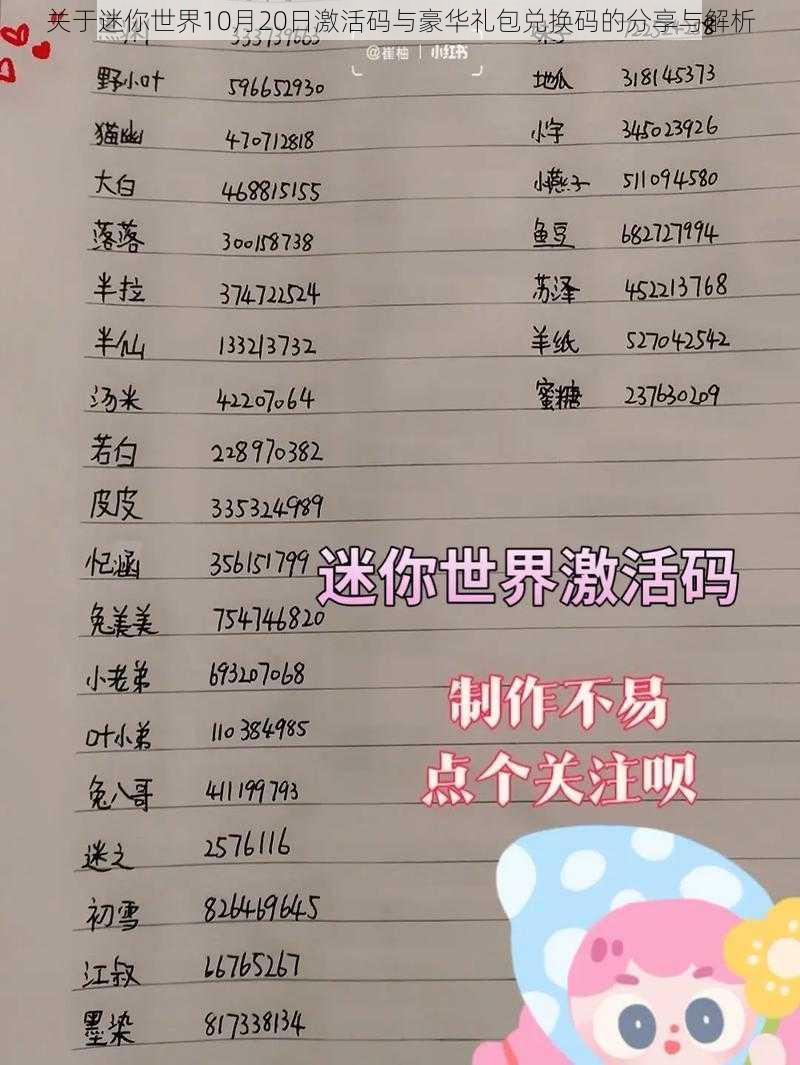 关于迷你世界10月20日激活码与豪华礼包兑换码的分享与解析
@崔柚 | 小红书
野小叶 596652930
地瓜 318145373
猫幽 470712818
小字 345023926
大白 468815155
小燕子 511094580
落落 300158738
鱼豆 682727994
半拉 374722524
苏泽 452213768
半仙 133213732
羊纸 527042542
汤米 42207064
蜜糖 237630209
若白 228970382
皮皮 335324989
忆涵 356151799
迷你世界激活码
兔美美 754746820
小老弟 693207068
制作不易
叶小弟 110384985
点个关注呗
兔八哥 411199793
迷之 2576116
初雪 826469645
江叔 66765267
墨染 817338134